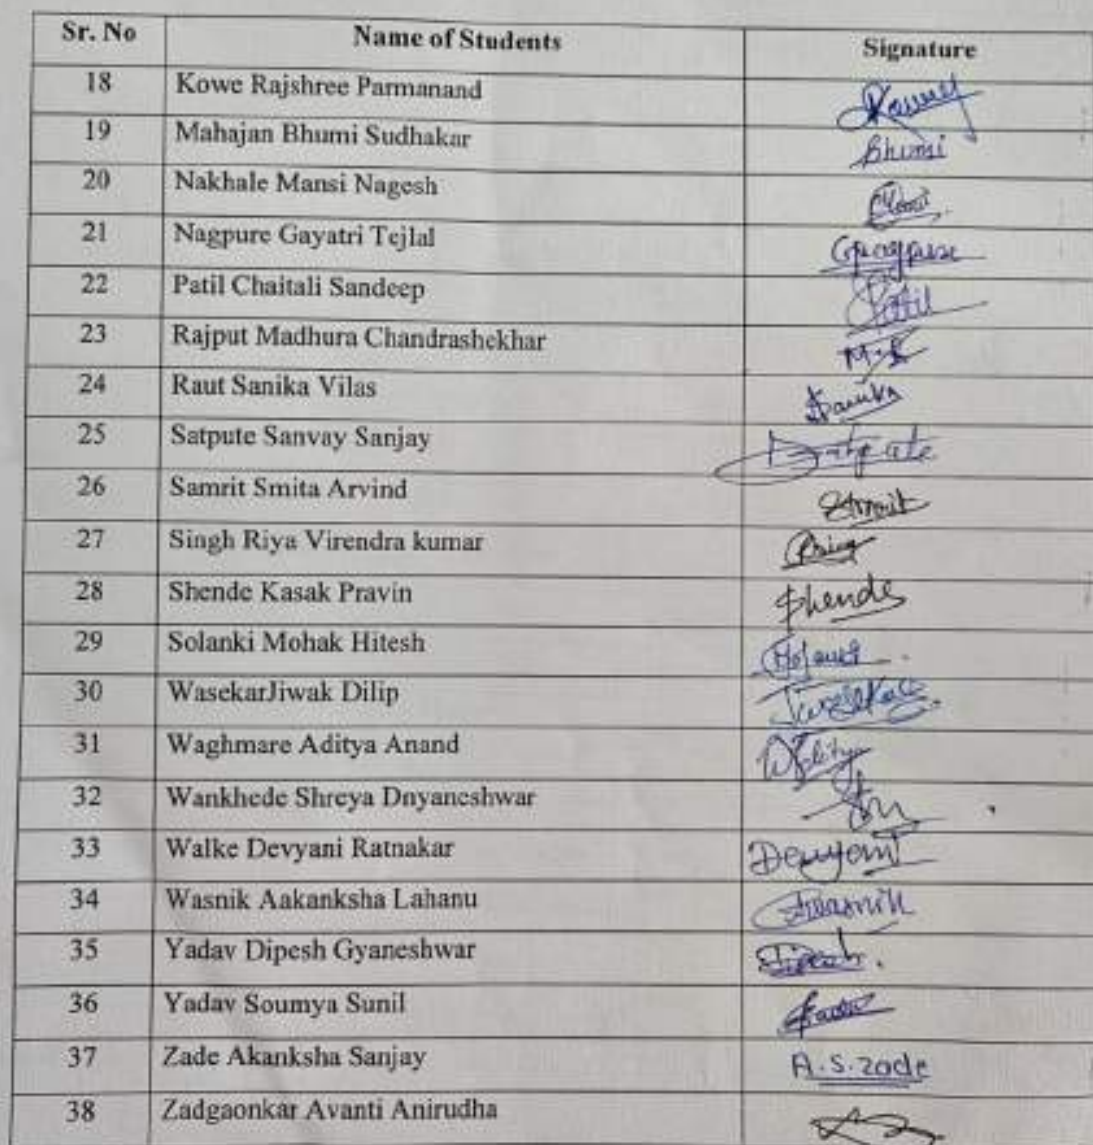 Sr. No Name of Students Signature
18 Kowe Rajshree Parmanand
19 Mahajan Bhumi Sudhakar Bhumi
20 Nakhale Mansi Nagesh
21 Nagpure Gayatri Tejlal
22 Patil Chaitali Sandeep Patil
23 Rajput Madhura Chandrashekhar
24 Raut Sanika Vilas Sanika
25 Satpute Sanvay Sanjay
26 Samrit Smita Arvind
27 Singh Riya Virendra kumar
28 Shende Kasak Pravin Shende
29 Solanki Mohak Hitesh
30 WasekarJiwak Dilip
31 Waghmare Aditya Anand
32 Wankhede Shreya Dnyaneshwar
33 Walke Devyani Ratnakar Devyani
34 Wasnik Aakanksha Lahanu
35 Yadav Dipesh Gyaneshwar
36 Yadav Soumya Sunil
37 Zade Akanksha Sanjay A.S.zade
38 Zadgaonkar Avanti Anirudha